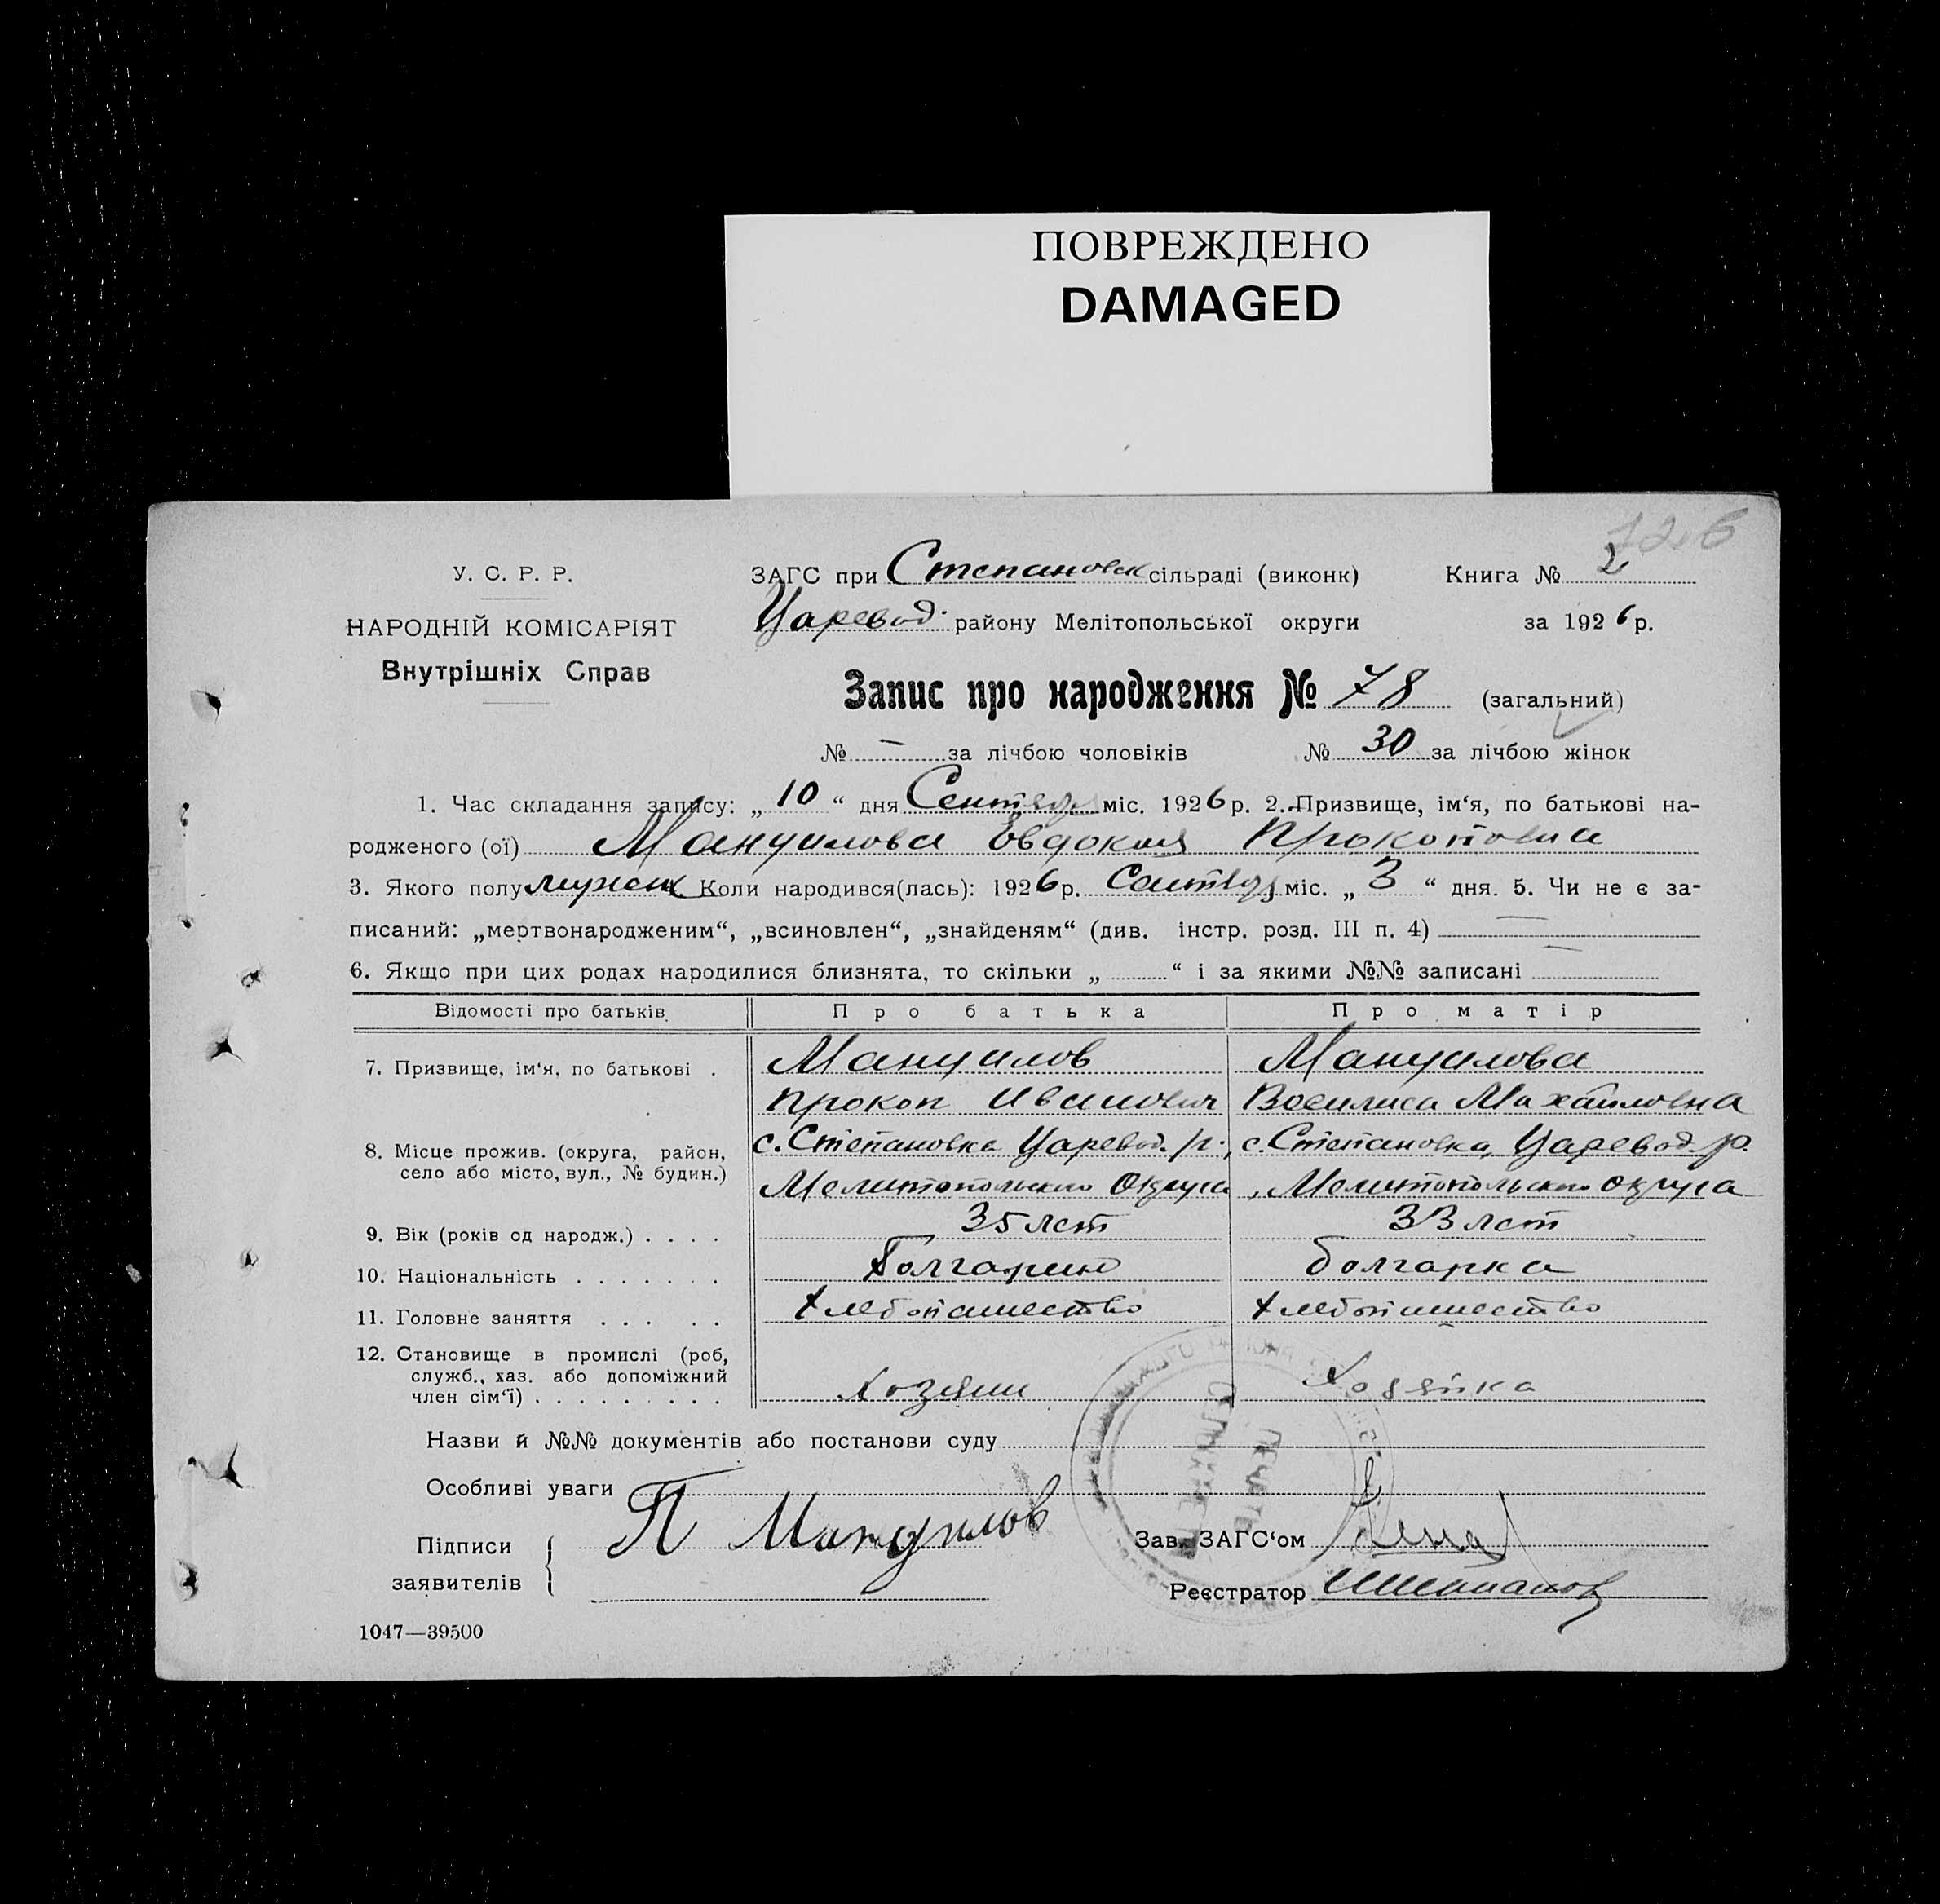 ПОВРЕЖДЕНО
DAMAGED
У. С. Р. Р.
НАРОДНІЙ КОМІСАРІЯТ
Внутрішніх Справ
ЗАГС при Степановск сільраді (виконк) Книга № 2
Царевод. району Мелітопольської округи за 1926 р.
Запис про народження № 78 (загальний)
№ — за лічбою чоловіків № 30 за лічбою жінок
1. Час складання запису: „ 10 “ дня міс. 1926 р. 2. Призвище, ім‘я, по батькові на-
родженого (ої) Мануилова Евдокия
3. Якого полу Коли народився(лась): 1926 р. міс. „ 3 “ дня. 5. Чи не є за-
писаний: „мертвонародженим“, „всиновлен“, „знайденям“ (див. інстр. розд. III п. 4) —
6. Якщо при цих родах народилися близнята, то скільки „ “ і за якими №№ записані —
Відомості про батьків. Про батька Про матір
7. Призвище, ім‘я, по батькові . Мануилов Мануилова
Прокоп Иванович Василиса Михайловна
8. Місце прожив. (округа, район, село або місто, вул., № будин.) с. Степановка Царевод. р., с. Степановка, Царевод. р.
Мелитопольского Округа, Мелитопольского округа
9. Вік (років од народж.) . . . . 35 лет 33 лет
10. Національність . . . . . . . Болгарин болгарка
11. Головне заняття . . . . . Хлебопашество Хлебопашество
12. Становище в промислі (роб, служб., хаз. або допоміжний член сім‘ї) . . . . . . . . . Хозяин Хозяйка
Назви й №№ документів або постанови суду
Особливі уваги
Підписи заявителів П Мануилов
Зав. ЗАГС‘ом
Реєстратор
1047—39500